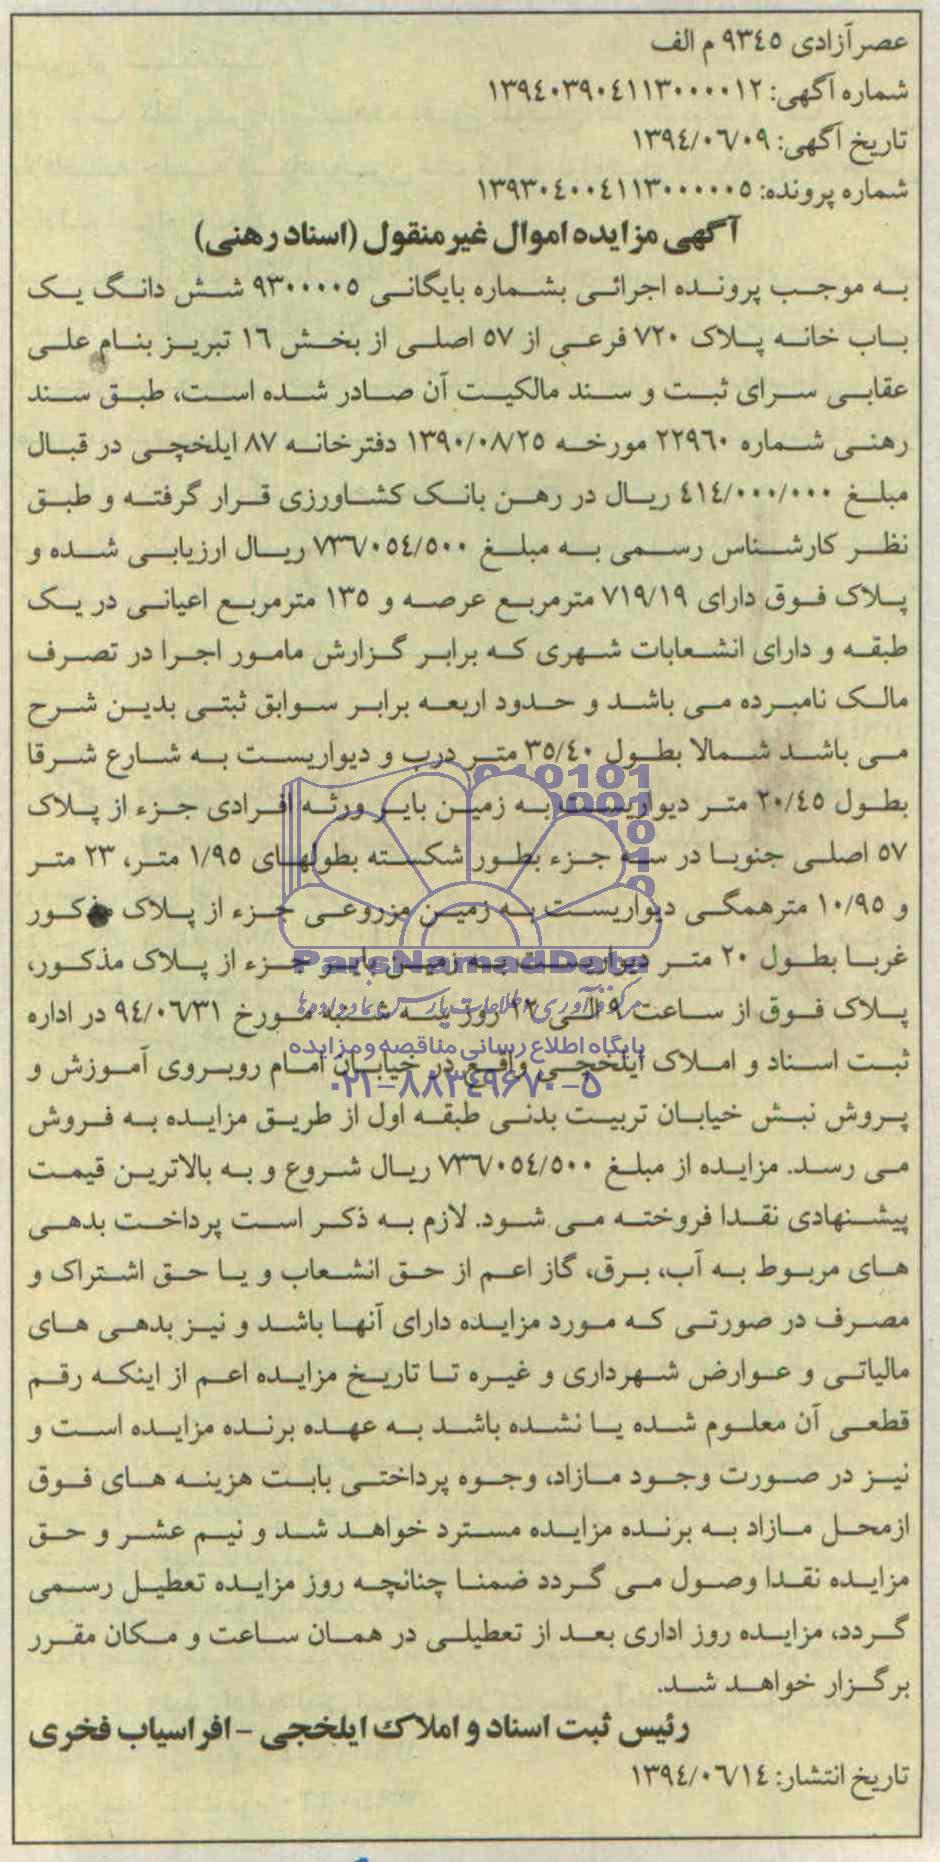 عصر آزادی ۹۳۴۵ م الف
شماره آگهی: ۱۳۹۴۰۳۹۰۴۱۱۳۰۰۰۰۱۲
تاریخ آگهی: ۱۳۹۴/۰۶/۰۹
شماره پرونده: ۱۳۹۳۰۴۰۰۴۱۱۳۰۰۰۰۰۵
آگهی مزایده اموال غیر منقول (اسناد رهنی)
به موجب پرونده اجرائی بشماره بایگانی ۹۳۰۰۰۰۵ شش دانگ یک
باب خانه پلاک ۷۲۰ فرعی از ۵۷ اصلی از بخش ۱۶ تبریز بنام علی
عقابی سرای ثبت و سند مالکیت آن صادر شده است، طبق سند
رهنی شماره ۲۲۹۶۰ مورخه ۱۳۹۰/۰۸/۲۵ دفترخانه ۸۷ ایلخچی در قبال
مبلغ ۴۱۴/۰۰۰/۰۰۰ ریال در رهن بانک کشاورزی قرار گرفته و طبق
نظر کارشناس رسمی به مبلغ ۷۳۶/۰۵۴/۵۰۰ ریال ارزیابی شده و
پلاک فوق دارای ۷۱۹/۱۹ مترمربع عرصه و ۱۳۵ مترمربع اعیانی در یک
طبقه و دارای انشعابات شهری که برابر گزارش مامور اجرا در تصرف
مالک نامبرده می باشد و حدود اربعه برابر سوابق ثبتی بدین شرح
می باشد شمالا بطول ۳۵/۴۰ متر درب و دیواریست به شارع شرقا
بطول ۲۰/۴۵ متر دیواریست به زمین بایر ورثه افرادی جزء از پلاک
۵۷ اصلی جنوبا در سه جزء بطور شکسته بطولهای ۱/۹۵ متر، ۲۳ متر
و ۱۰/۹۵ مترهمگی دیواریست به زمین مزروعی جزء از پلاک مذکور
غربا بطول ۲۰ متر دیواریست به زمین بایر جزء از پلاک مذکور،
پلاک فوق از ساعت ۹ الی ۱۲ روز سه شنبه مورخ ۹۴/۰۶/۳۱ در اداره
ثبت اسناد و املاک ایلخچی واقع در خیابان امام روبروی آموزش و
پروش نبش خیابان تربیت بدنی طبقه اول از طریق مزایده به فروش
می رسد. مزایده از مبلغ ۷۳۶/۰۵۴/۵۰۰ ریال شروع و به بالاترین قیمت
پیشنهادی نقدا فروخته می شود. لازم به ذکر است پرداخت بدهی
های مربوط به آب، برق، گاز اعم از حق انشعاب و یا حق اشتراک و
مصرف در صورتی که مورد مزایده دارای آنها باشد و نیز بدهی های
مالیاتی و عوارض شهرداری و غیره تا تاریخ مزایده اعم از اینکه رقم
قطعی آن معلوم شده یا نشده باشد به عهده برنده مزایده است و
نیز در صورت وجود مازاد، وجوه پرداختی بابت هزینه های فوق
ازمحل مازاد به برنده مزایده مسترد خواهد شد و نیم عشر و حق
مزایده نقدا وصول می گردد ضمنا چنانچه روز مزایده تعطیل رسمی
گردد، مزایده روز اداری بعد از تعطیلی در همان ساعت و مکان مقرر
برگزار خواهد شد.
رئیس ثبت اسناد و املاک ایلخجی - افراسیاب فخری
تاریخ انتشار: ۱۳۹۴/۰۶/۱۴
ParsNamadData
مرکز فرآوری اطلاعات پارس نماد داده ها
پایگاه اطلاع رسانی مناقصه و مزایده
۰۲۱-۸۸۳۴۹۶۷۰-۵